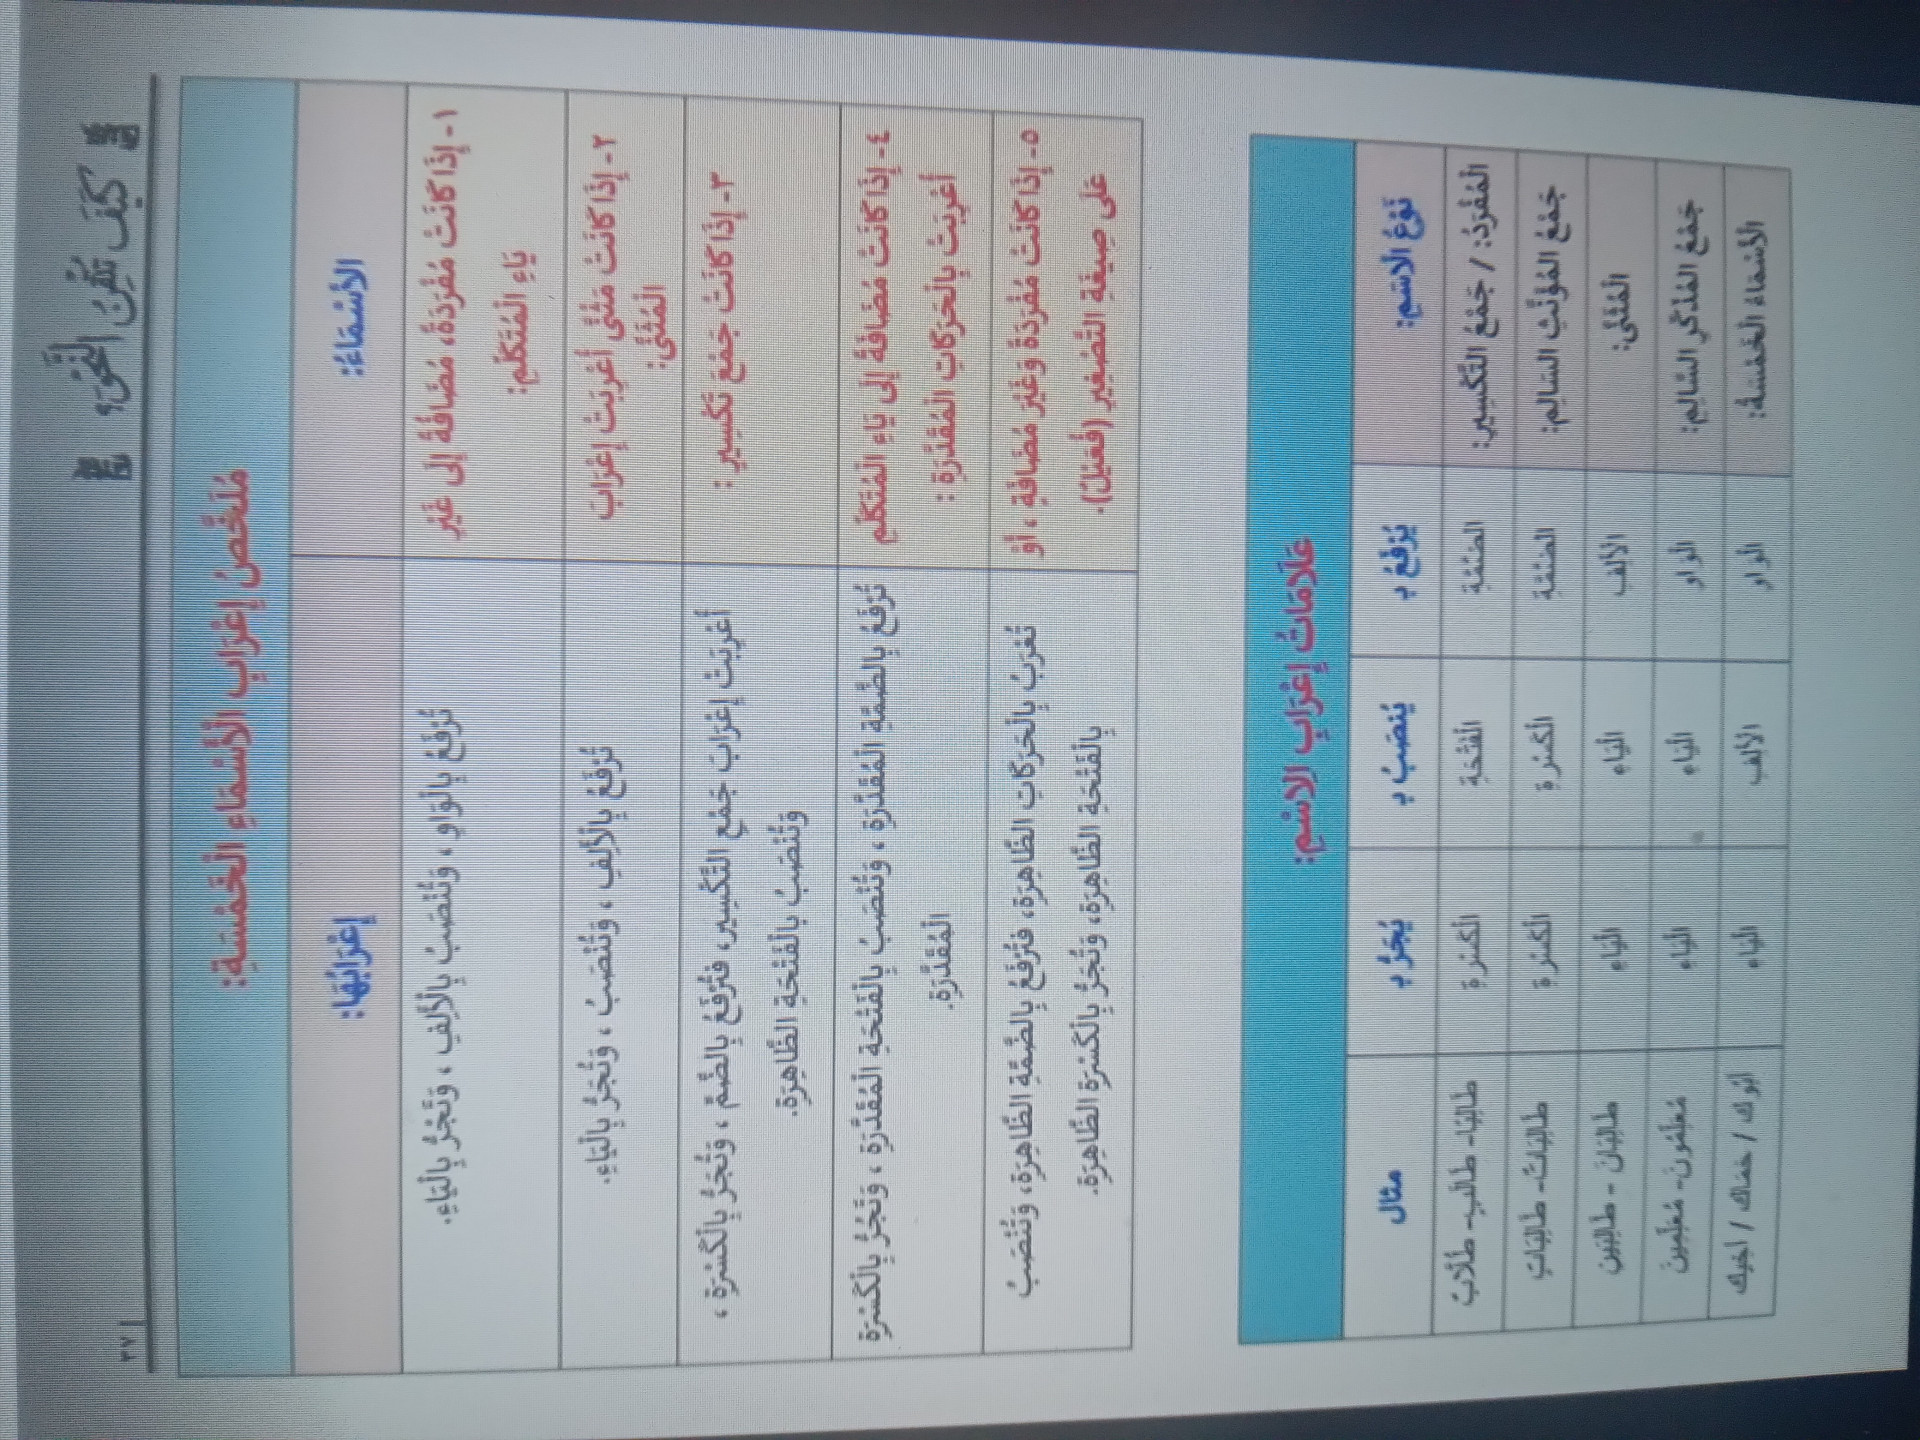 كَيْفَ تُتْقِنُ النَّحْوَ؟
٣٧
مُلَخَّصُ إِعْرَابِ الْأَسْمَاءِ الْخَمْسَةِ:
الْأَسْمَاءُ:
إِعْرَابُهَا:
١- إِذَا كَانَتْ مُفْرَدَةً، مُضَافَةً إِلَى غَيْرِ
يَاءِ الْمُتَكَلِّمِ:
تُرْفَعُ بِالْوَاوِ، وَتُنْصَبُ بِالْأَلِفِ، وَتُجَرُّ بِالْيَاءِ.
٢- إِذَا كَانَتْ مُثَنًّى أُعْرِبَتْ إِعْرَابَ
الْمُثَنَّى:
تُرْفَعُ بِالْأَلِفِ، وَتُنْصَبُ، وَتُجَرُّ بِالْيَاءِ.
٣- إِذَا كَانَتْ جَمْعَ تَكْسِيرٍ:
أُعْرِبَتْ إِعْرَابَ جَمْعِ التَّكْسِيرِ، فَتُرْفَعُ بِالضَّمِّ، وَتُجَرُّ بِالْكَسْرَةِ،
وَتُنْصَبُ بِالْفَتْحَةِ الظَّاهِرَةِ.
٤- إِذَا كَانَتْ مُضَافَةً إِلَى يَاءِ الْمُتَكَلِّمِ
أُعْرِبَتْ بِالْحَرَكَاتِ الْمُقَدَّرَةِ:
تُرْفَعُ بِالضَّمَّةِ الْمُقَدَّرَةِ، وَتُنْصَبُ بِالْفَتْحَةِ الْمُقَدَّرَةِ، وَتُجَرُّ بِالْكَسْرَةِ
الْمُقَدَّرَةِ.
٥- إِذَا كَانَتْ مُفْرَدَةً وَغَيْرَ مُضَافَةٍ، أَوْ
عَلَى صِيغَةِ التَّصْغِيرِ (فُعَيْلٌ).
تُعْرَبُ بِالْحَرَكَاتِ الظَّاهِرَةِ، فَتُرْفَعُ بِالضَّمَّةِ الظَّاهِرَةِ، وَتُنْصَبُ
بِالْفَتْحَةِ الظَّاهِرَةِ، وَتُجَرُّ بِالْكَسْرَةِ الظَّاهِرَةِ.
عَلَامَاتُ إِعْرَابِ الِاسْمِ:
نَوْعُ الِاسْمِ: يُرْفَعُ بِـ يُنْصَبُ بِـ يُجَرُّ بِـ مثال
الْمُفْرَدُ: / جَمْعُ التَّكْسِيرِ: الضَّمَّةِ الْفَتْحَةِ الْكَسْرَةِ طَالِبًا- طَالِبٍ- طُلَّابٌ
جَمْعُ الْمُؤَنَّثِ السَّالِمِ: الضَّمَّةِ الْكَسْرَةِ الْكَسْرَةِ طَالِبَاتٌ- طَالِبَاتٍ
الْمُثَنَّى: الْأَلِفِ الْيَاءِ الْيَاءِ طَالِبَانِ - طَالِبَيْنِ
جَمْعُ الْمُذَكَّرِ السَّالِمِ: الْوَاوِ الْيَاءِ الْيَاءِ مُعَلِّمُونَ- مُعَلِّمِينَ
الْأَسْمَاءُ الْخَمْسَةُ: الْوَاوِ الْأَلِفِ الْيَاءِ أَبُوكَ / حَمَاكَ / أَخِيكَ